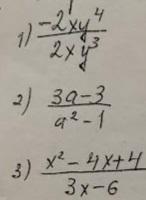 1) \frac{-2xy^4}{2xy^3}
2) \frac{3a-3}{a^2-1}
3) \frac{x^2-4x+4}{3x-6}